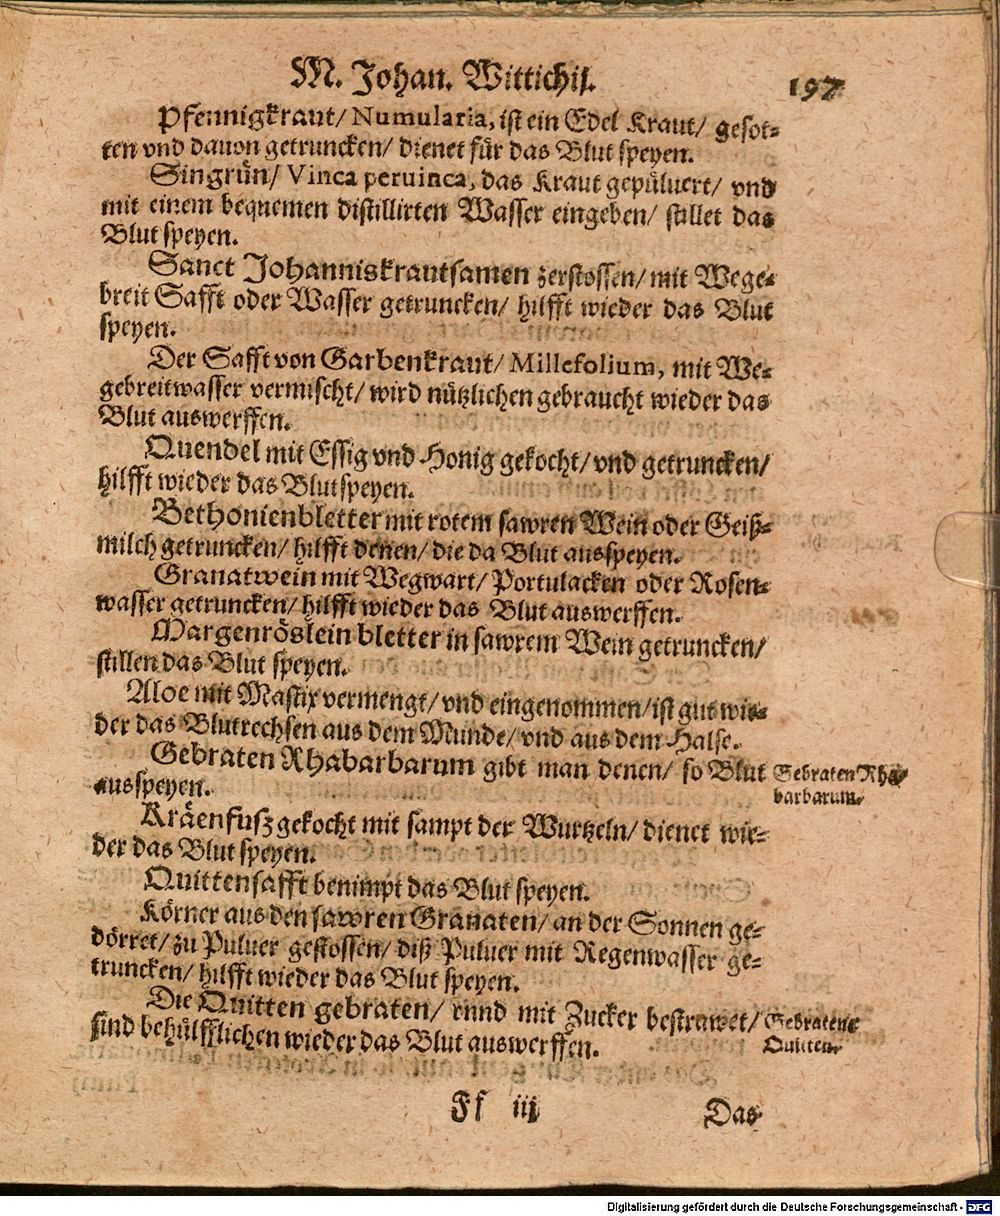 M. Johan. Wittichij.
197
Pfennigkraut/ Numularia, ist ein Edel Kraut/ gesot⸗
ten vnd dauon getruncken/ dienet für das Blut speyen.
Singrün/ Vinca peruinca, das Kraut gepüluert/ vnd
mit einem bequemen distillirten Wasser eingeben/ stillet das
Blut speyen.
Sanct Johanniskrautsamen zerstossen/ mit Wege⸗
breit Safft oder Wasser getruncken/ hilfft wieder das Blut
speyen.
Der Safft von Garbenkraut/ Millefolium, mit We⸗
gebreitwasser vermischt/ wird nützlichen gebraucht wieder das
Blut auswerffen.
Quendel mit Essig vnd Honig gekocht/ vnd getruncken/
hilfft wieder das Blutspeyen.
Bethonienbletter mit rotem sawren Wein oder Geiß⸗
milch getruncken/ hilfft denen/ die da Blut ausspeyen.
Granatwein mit Wegwart/ Portulacken oder Rosen⸗
wasser getruncken/ hilfft wieder das Blut auswerffen.
Margenröslein bletter in sawrem Wein getruncken/
stillen das Blut speyen.
Aloe mit Mastix vermengt/ vnd eingenommen/ ist gut wie⸗
der das Blutrechsen aus dem Munde/ vnd aus dem Halse.
Gebraten Rhabarbarum gibt man denen/ so Blut
ausspeyen.
Gebraten Rha⸗
barbarum.
Kräenfusz gekocht mit sampt der Wurtzeln/ dienet wie⸗
der das Blut speyen.
Quittensafft benimpt das Blut speyen.
Körner aus den sawren Granaten/ an der Sonnen ge⸗
dörret/ zu Puluer gestossen/ diß Puluer mit Regenwasser ge⸗
truncken/ hilfft wieder das Blut speyen.
Die Quitten gebraten/ vnnd mit Zucker bestrawet/
sind behülfflichen wieder das Blut auswerffen.
Gebratene
Quitten.
Ff iij
Das
Digitalisierung gefördert durch die Deutsche Forschungsgemeinschaft - DFG